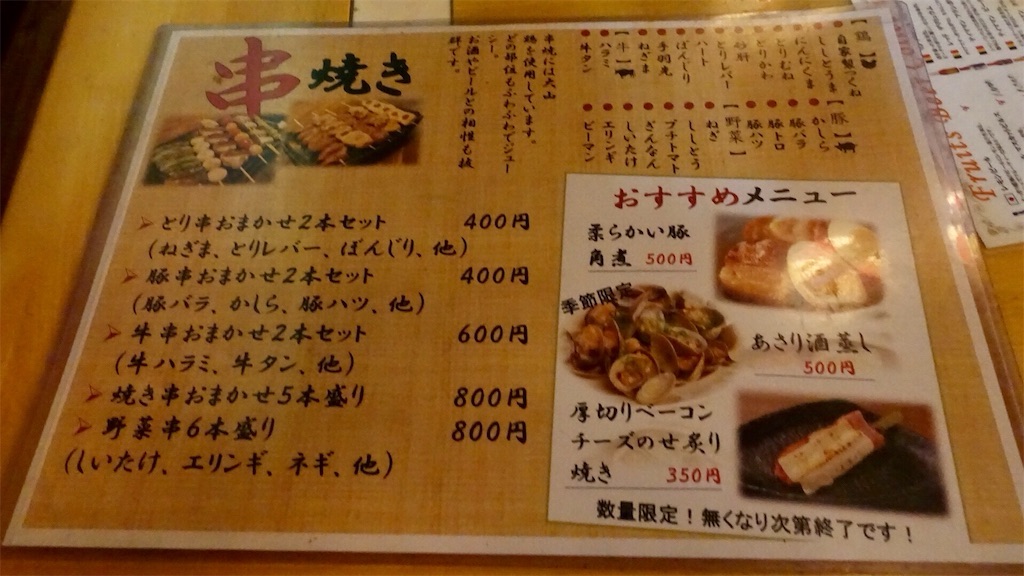 串焼き
串焼には大山
鶏を使用しています。
どの部位もふわふわでジュー
シー。
お酒やビールとの相性も抜
群です。
【鶏】
自家製つくね
ししとうま
にんにくま
とりむね
とりかわ
砂肝
とりレバー
ハート
ぼんじり
手羽先
ねぎま
【牛】
ハラミ
牛タン
【豚】
かしら
豚バラ
豚トロ
豚ハツ
【野菜】
ねぎ
ししとう
プチトマト
ぎんなん
しいたけ
エリンギ
ピーマン
とり串おまかせ2本セット 400円
(ねぎま、とりレバー、ぼんじり、他)
豚串おまかせ2本セット 400円
(豚バラ、かしら、豚ハツ、他)
牛串おまかせ2本セット 600円
(牛ハラミ、牛タン、他)
焼き串おまかせ5本盛り 800円
野菜串6本盛り 800円
(しいたけ、エリンギ、ネギ、他)
おすすめメニュー
柔らかい豚
角煮 500円
季節限定
あさり酒蒸し
500円
厚切りベーコン
チーズのせ炙り
焼き 350円
数量限定!無くなり次第終了です!